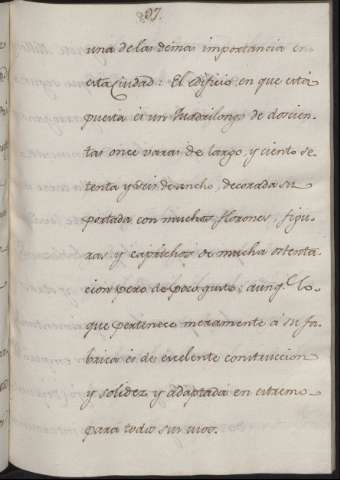 97.
una de las demas importancia en
esta Ciudad: El edificio en que está
puesta es un Quadrilongo de docien-
tas once varas de largo, y ciento se-
tenta y seis de ancho, decorada su
portada con muchos florones, figu-
ras y caprichos de mucha ostenta-
cion pero de poco gusto; aunq.e lo
que pertenece meramente á su fa-
brica es de excelente construccion
y solidez y adaptada en extremo
para todos sus usos.